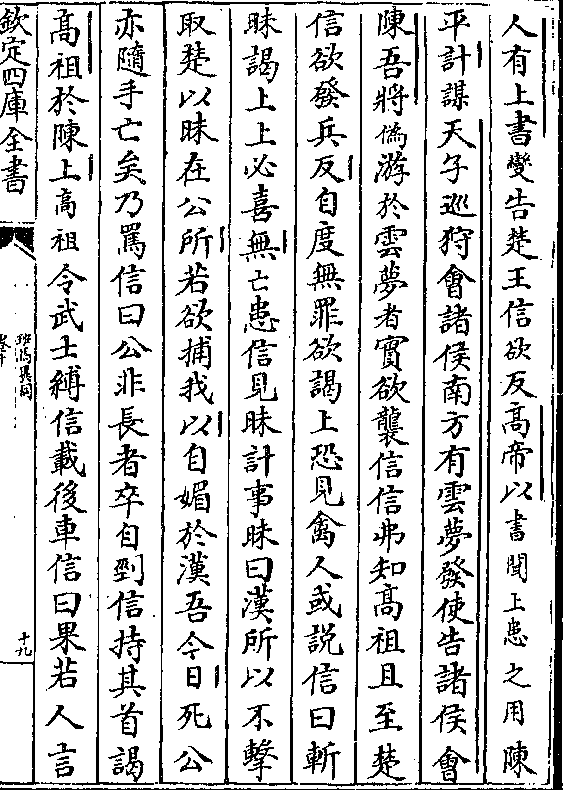 人有上書變告楚王信欲反高帝以書聞上患之用陳
平計謀天子巡狩會諸侯南方有雲夢發使告諸侯會
陳吾將偽游於雲夢者實欲襲信信弗知高祖且至楚
信欲發兵反自度無罪欲謁上恐見禽人或說信曰斬
昧謁上上必喜無亡患信見昧計事昧曰漢所以不擊
取楚以昧在公所若欲捕我以自媚於漢吾今日死公
亦隨手亡矣乃罵信曰公非長者卒自剄信持其首謁
高祖於陳上高祖令武士縛信載後車信曰果若人言
欽定四庫全書
班馬異同
十九